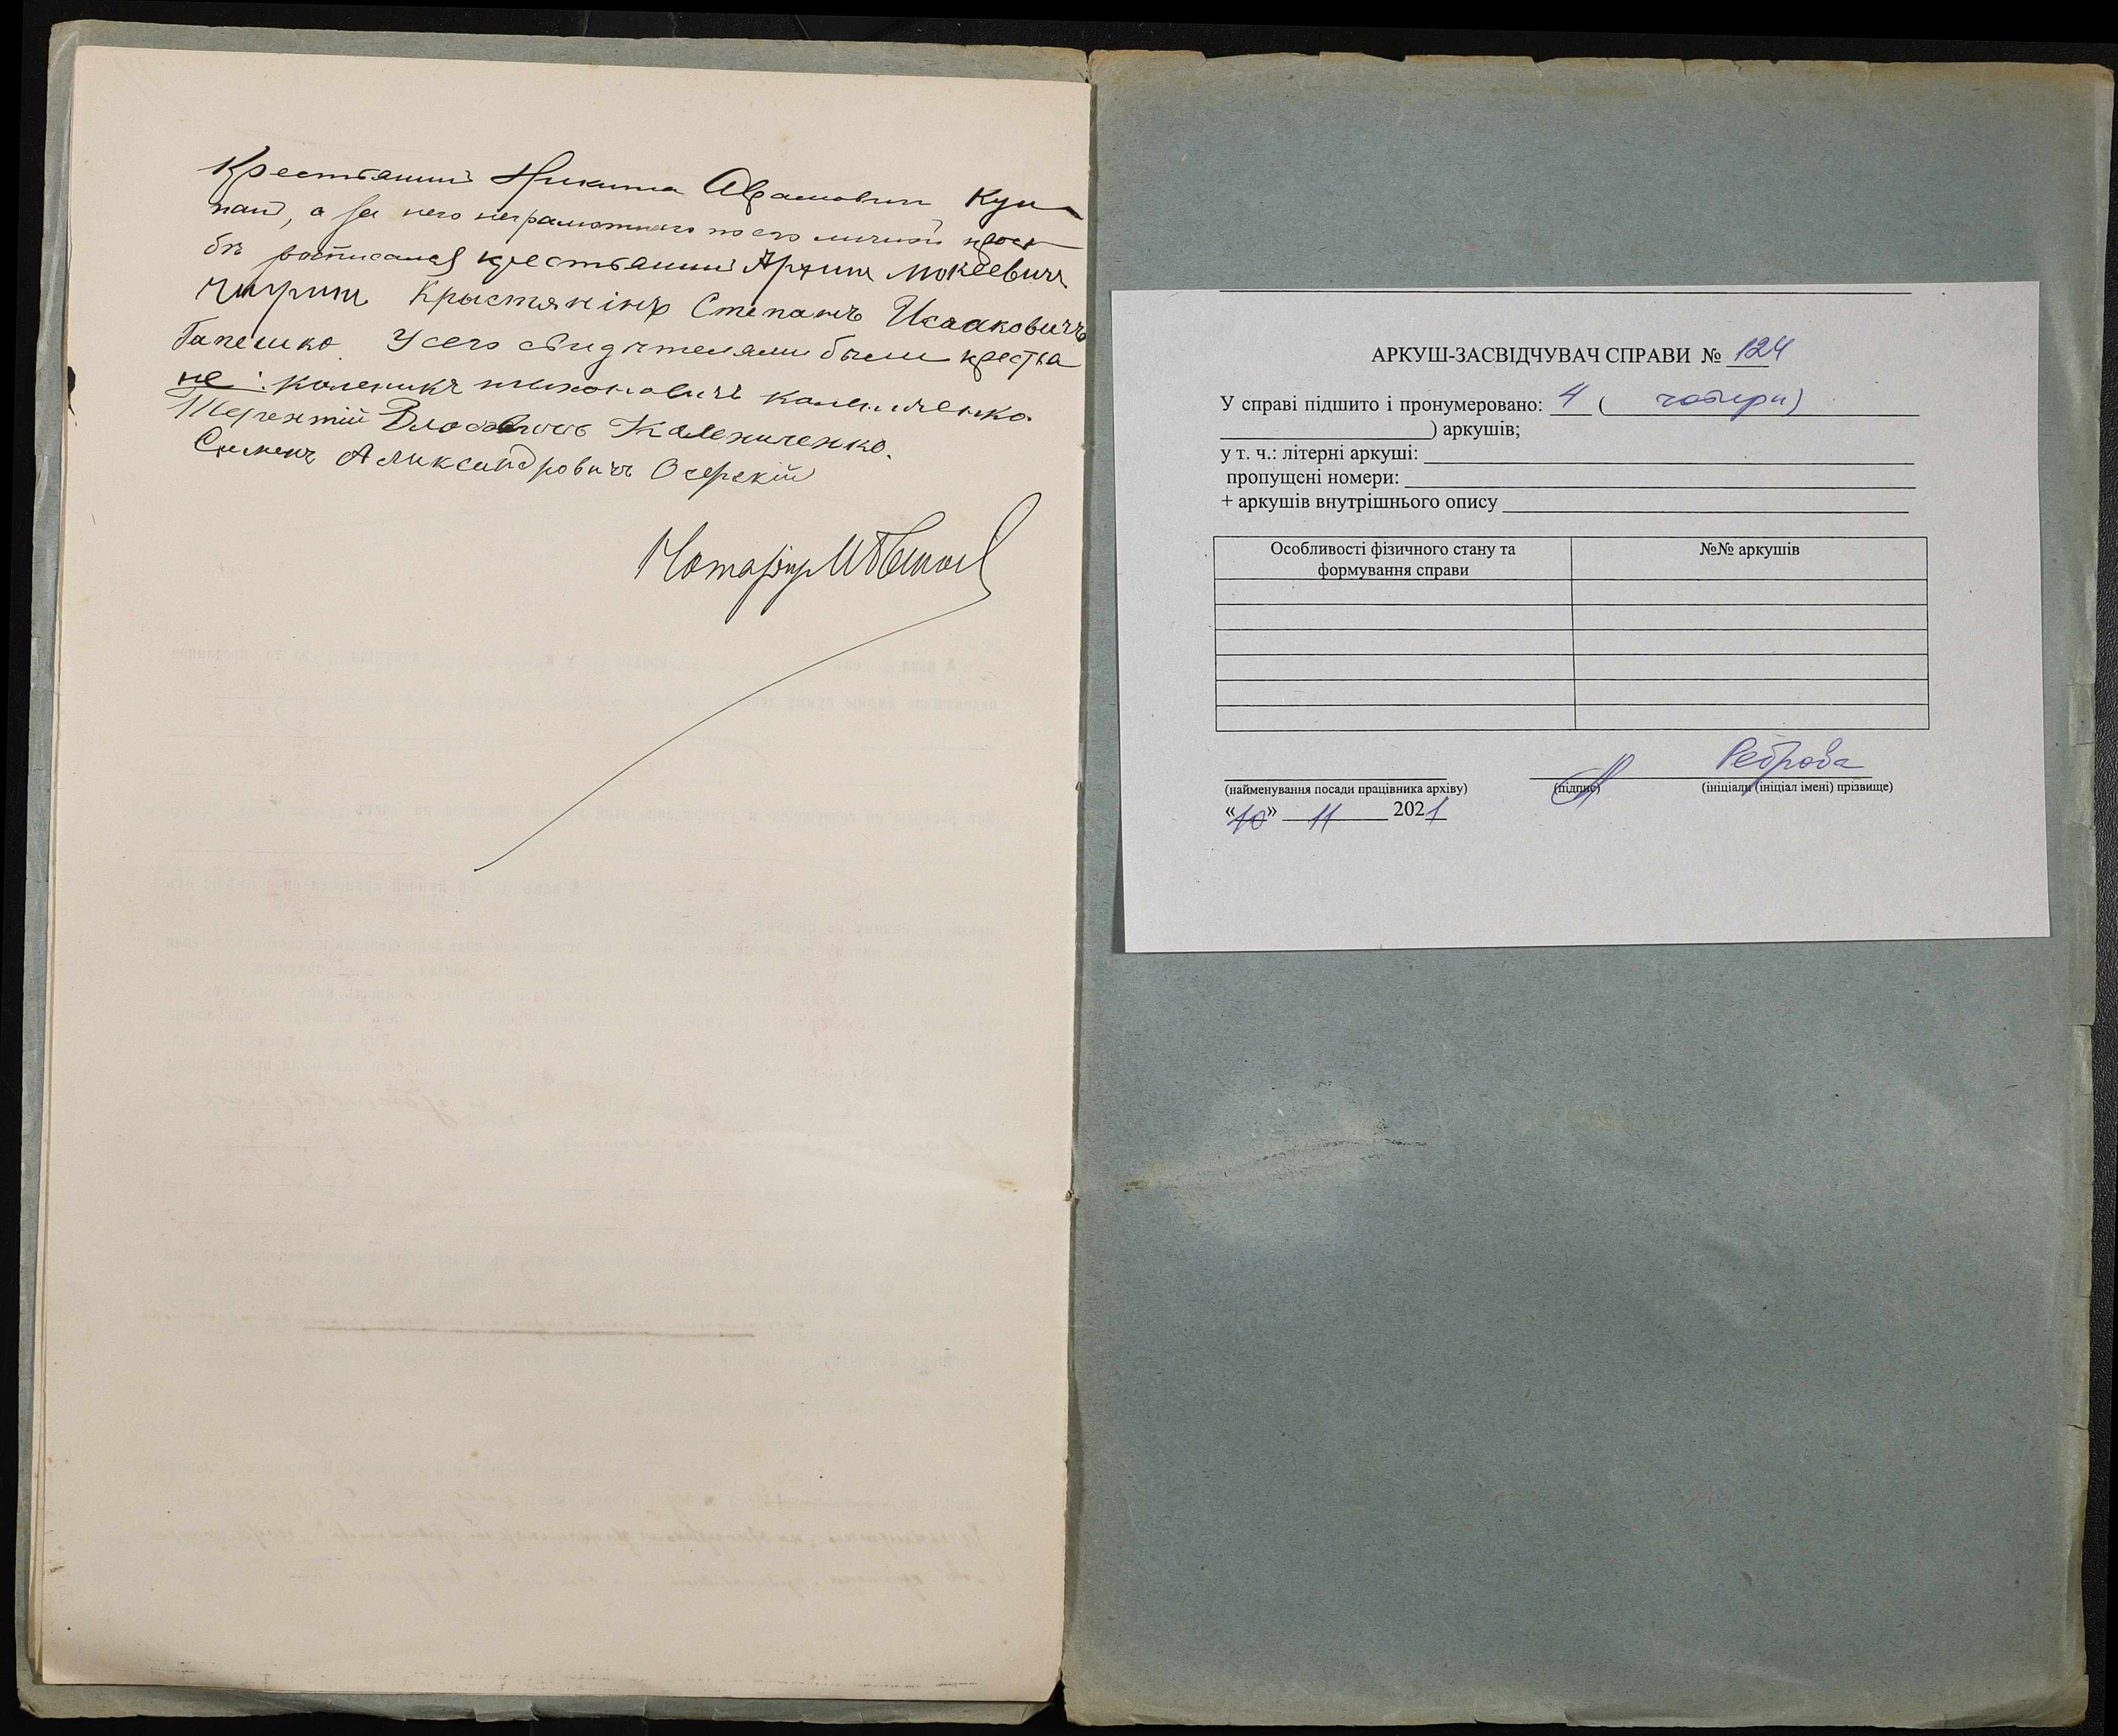 Крестьянинъ Никита Аврамовичъ Куп
пай, а за него неграмотнаго по его личной прось
бѣ росписался крестьянинъ Архипъ Мокеевичъ
Крыстянінъ Степанъ Исааковичъ
Гапешко. У сего свидѣтелями были крестья
не: Каленикъ Тихоновичъ Калениченко.
Терентій Власовичъ Калениченко.
Семенъ Александровичъ Озерскій
Нотаріусъ
АРКУШ-ЗАСВІДЧУВАЧ СПРАВИ № 124
У справі підшито і пронумеровано: 4 ( чотири)
) аркушів;
у т. ч.: літерні аркуші:
пропущені номери:
+ аркушів внутрішнього опису
Особливості фізичного стану та формування справи
№№ аркушів
Реброва
(найменування посади працівника архіву) (підпис) (ініціали (ініціал імені) прізвище)
«10» 11 2021